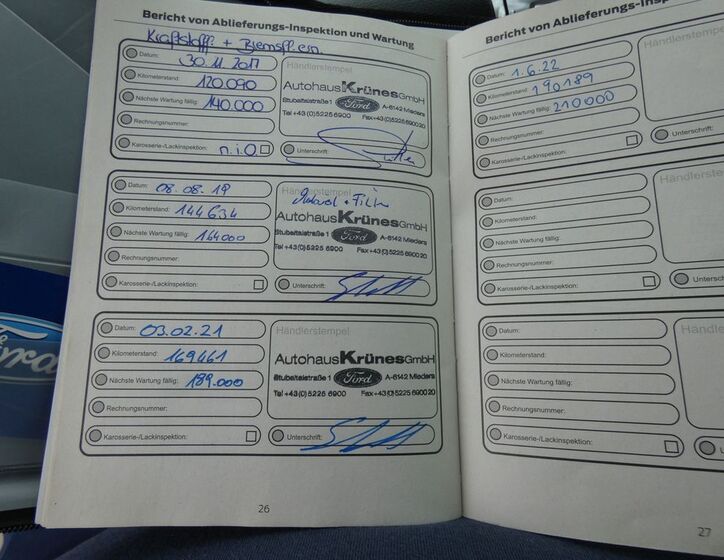 Bericht von Ablieferungs-Inspektion und Wartung
Kraftstoff + Bremsfl. ern.
Datum: 30.11.2017
Kilometerstand: 120.090
Nächste Wartung fällig: 140.000
Rechnungsnummer:
Karosserie-/Lackinspektion: n.i.O.
Händlerstempel
Autohaus Krünes GmbH
Stubaitalstraße 1 Ford A-6142 Mieders
Tel +43 (0)5225 6900 Fax +43 (0)5225 690020
Unterschrift:
Datum: 08.08.19
Kilometerstand: 144634
Nächste Wartung fällig: 164000
Rechnungsnummer:
Karosserie-/Lackinspektion:
Händlerstempel
Autohaus Krünes GmbH
Stubaitalstraße 1 Ford A-6142 Mieders
Tel +43 (0)5225 6900 Fax +43 (0)5225 690020
Unterschrift:
Datum: 03.02.21
Kilometerstand: 169461
Nächste Wartung fällig: 189.000
Rechnungsnummer:
Karosserie-/Lackinspektion:
Händlerstempel
Autohaus Krünes GmbH
Stubaitalstraße 1 Ford A-6142 Mieders
Tel +43 (0)5225 6900 Fax +43 (0)5225 690020
Unterschrift:
26
Bericht von Ablieferungs-Insp
Datum: 1.6.22
Kilometerstand: 190189
Nächste Wartung fällig: 210000
Rechnungsnummer:
Karosserie-/Lackinspektion:
Händlerstempe
Unterschrift:
Datum:
Kilometerstand:
Nächste Wartung fällig:
Rechnungsnummer:
Karosserie-/Lackinspektion:
Händlerste
Unterschrift:
Datum:
Kilometerstand:
Nächste Wartung fällig:
Rechnungsnummer:
Karosserie-/Lackinspektion:
Händler
Unters
27
Ford